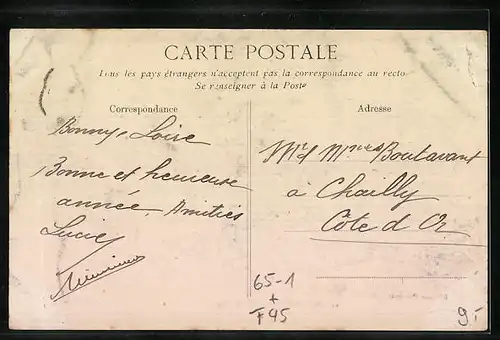 CARTE POSTALE
Tous les pays étrangers n'acceptent pas la correspondance au recto
Se renseigner à la Poste
Correspondance
Adresse
Bonny, Loire
Bonne et heureuse
année, Amitiés
Lucie
Mr et Mme Boutavant
à Chailly
Côte d Or
65-1
+
F45
9.-